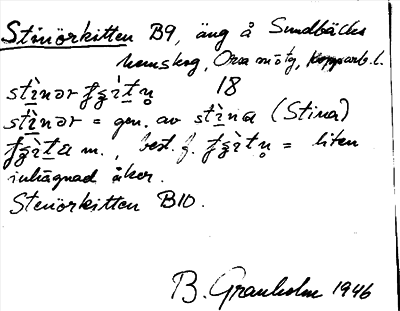 Stinörkitten B9, äng å Sundbäcks
hemskog, Orsa mötg, Kopparb. l.
stìnər 18
stìnər = gen. av stìna (Stina)
m., best. f. = liten
inhägnad åker.
Stenörkitten B10.
B. Granholm 1946